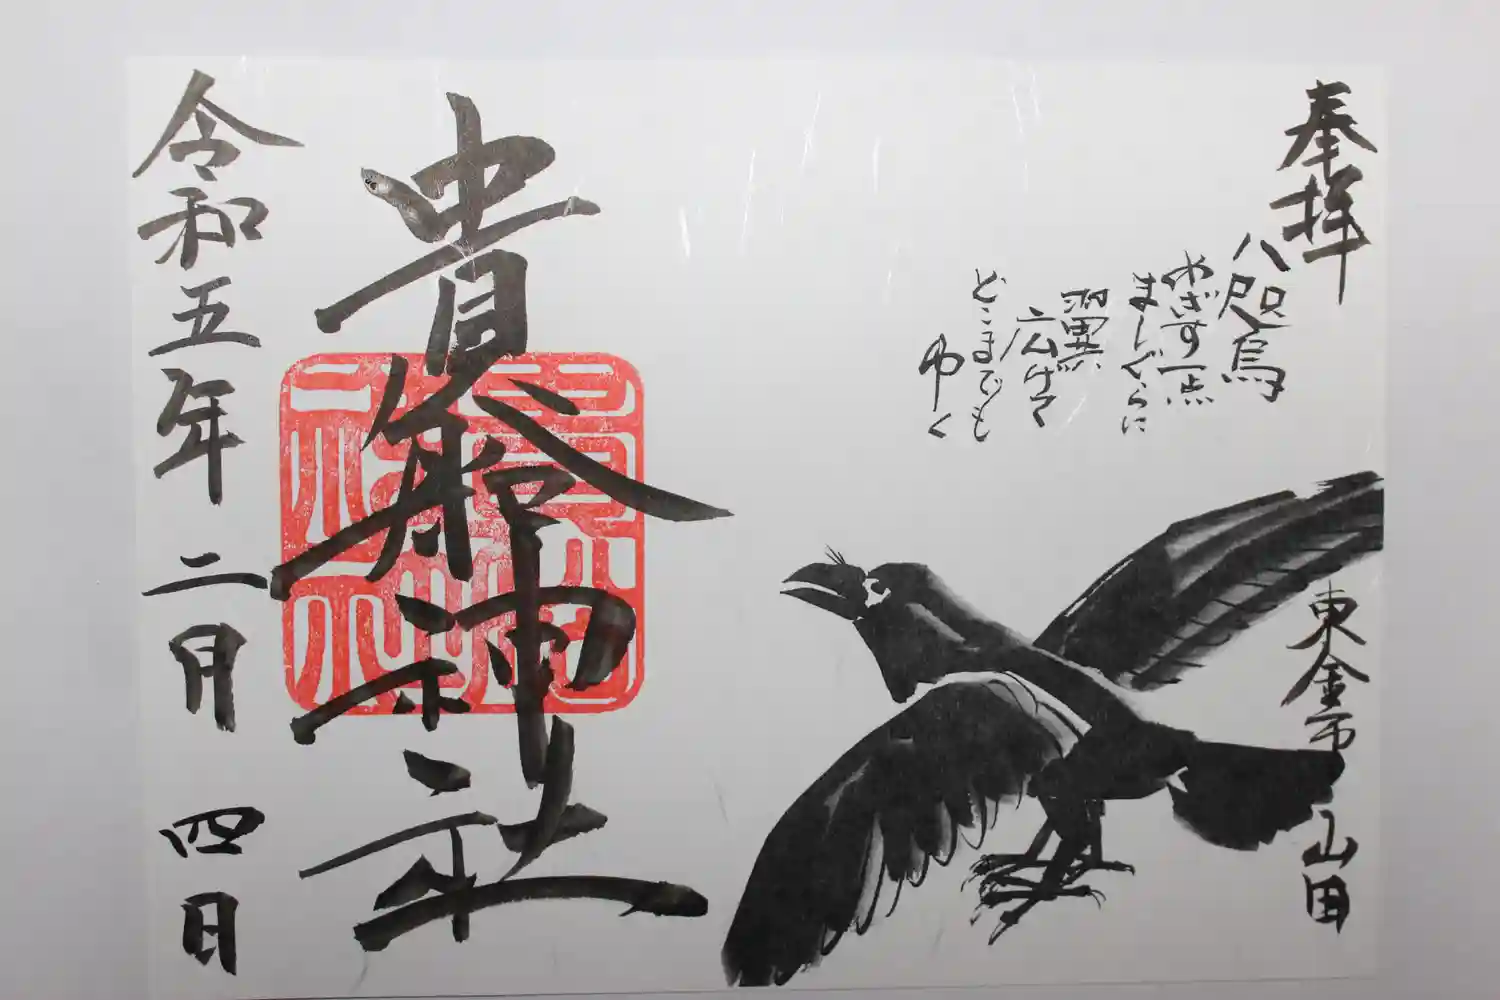 奉拝
八咫烏
めざす一点
ましぐらに
翼
広げて
どこまでも
ゆく
東金市
山田
貴船神社
令和五年二月四日